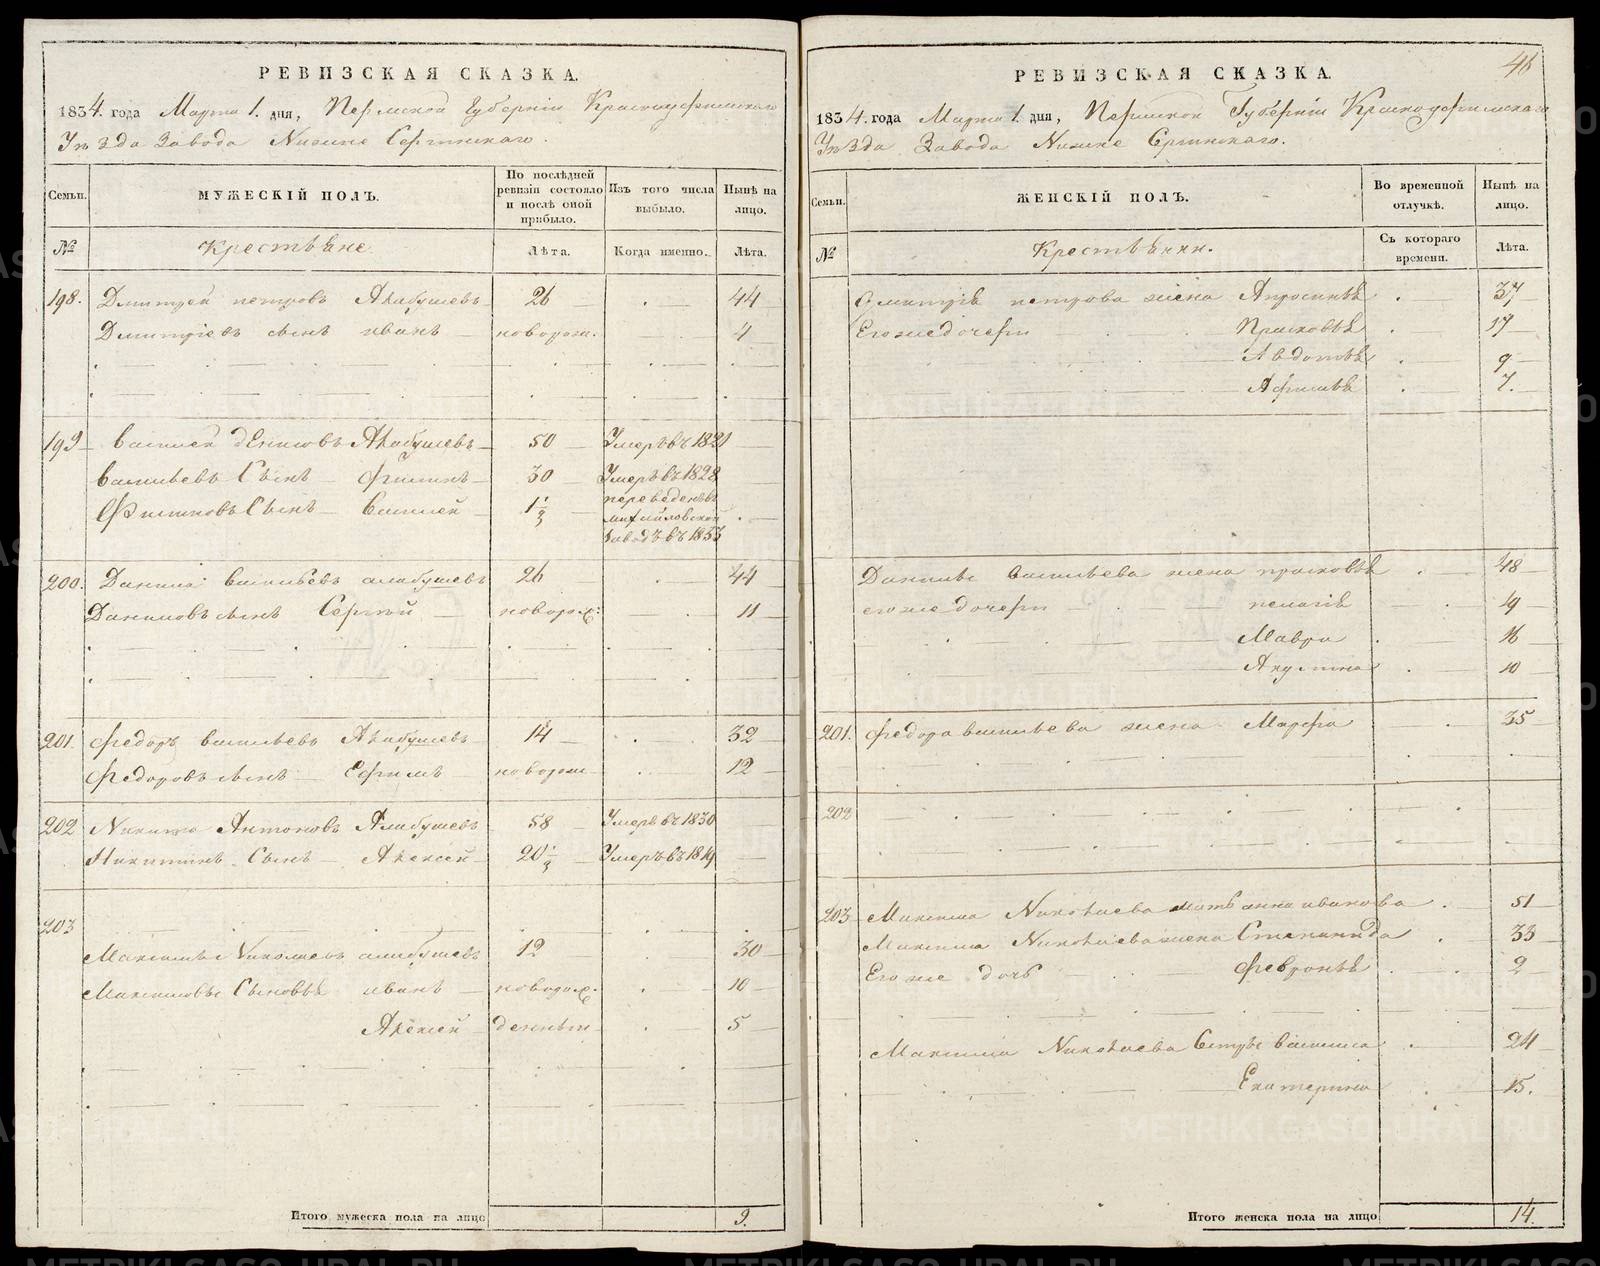 РЕВИЗСКАЯ СКАЗКА.
1834. года Марта 1. дня, Пермской Губерніи Красноуфимскаго
Уѣзда Завода Нижне Сергинскаго.
Семьи.
МУЖЕСКІЙ ПОЛЪ.
По послѣдней ревизіи состояло и послѣ оной прибыло.
Изъ того числа выбыло.
Нынѣ на лицо.
№
Крестьяне
Лѣта.
Когда именно.
Лѣта.
198. Дмитрей петровъ Алабушевъ 26 44
Дмитріевъ сынъ иванъ новорож. 4
199 Василей денисовъ Алабушевъ 50 Умеръ въ 1821
Васильевъ Сынъ Филипъ 30 Умеръ въ 1828
Филиповъ Сынъ Василей 1½ переведенъ въ
михайловской
заводъ въ 1833
200. Данила Васильевъ алабушевъ 26 44
Даниловъ сынъ Сергий новорож: 11
201. Федоръ васильевъ Алабушевъ 14 32
Федоровъ сынъ Ефимъ новорож 12
202 Никита Антоновъ Алабушевъ 58 Умеръ въ 1830
Никитинъ Сынъ Алексей 20½ Умеръ въ 1819
203
Максимъ Николаевъ алабушевъ 12 30
Максимовы Сыновья иванъ новорож. 10
Алексей 5
Итого мужеска пола на лицо 9.
46
РЕВИЗСКАЯ СКАЗКА.
1834. года Марта 1. дня, Пермской Губерніи Красноуфимскаго
Уѣзда Завода Нижне Сергинскаго.
Семьи.
ЖЕНСКІЙ ПОЛЪ.
Во временной отлучкѣ.
Нынѣ на лицо.
№
Крестьянки.
Съ котораго времени.
Лѣта.
Дмитрія петрова жена Апросинья 37
Его же дочери Прасковья 17
Авдотья 9
Афимья 7.
Данилы Васильева жена прасковья 48
его же дочери пелагія 19
Мавра 16
Акулина 10
201. Федора васильева жена Марфа 35
202
203 Максима Николаева мать анна иванова 51
Максима Николаева жена Степанида 33
Его же дочь Февронья 2
Максима Николаева Сестры василиса 24
Екатерина 15.
Итого женска пола на лицо 14.
METRIKI.GASO-URAL.RU